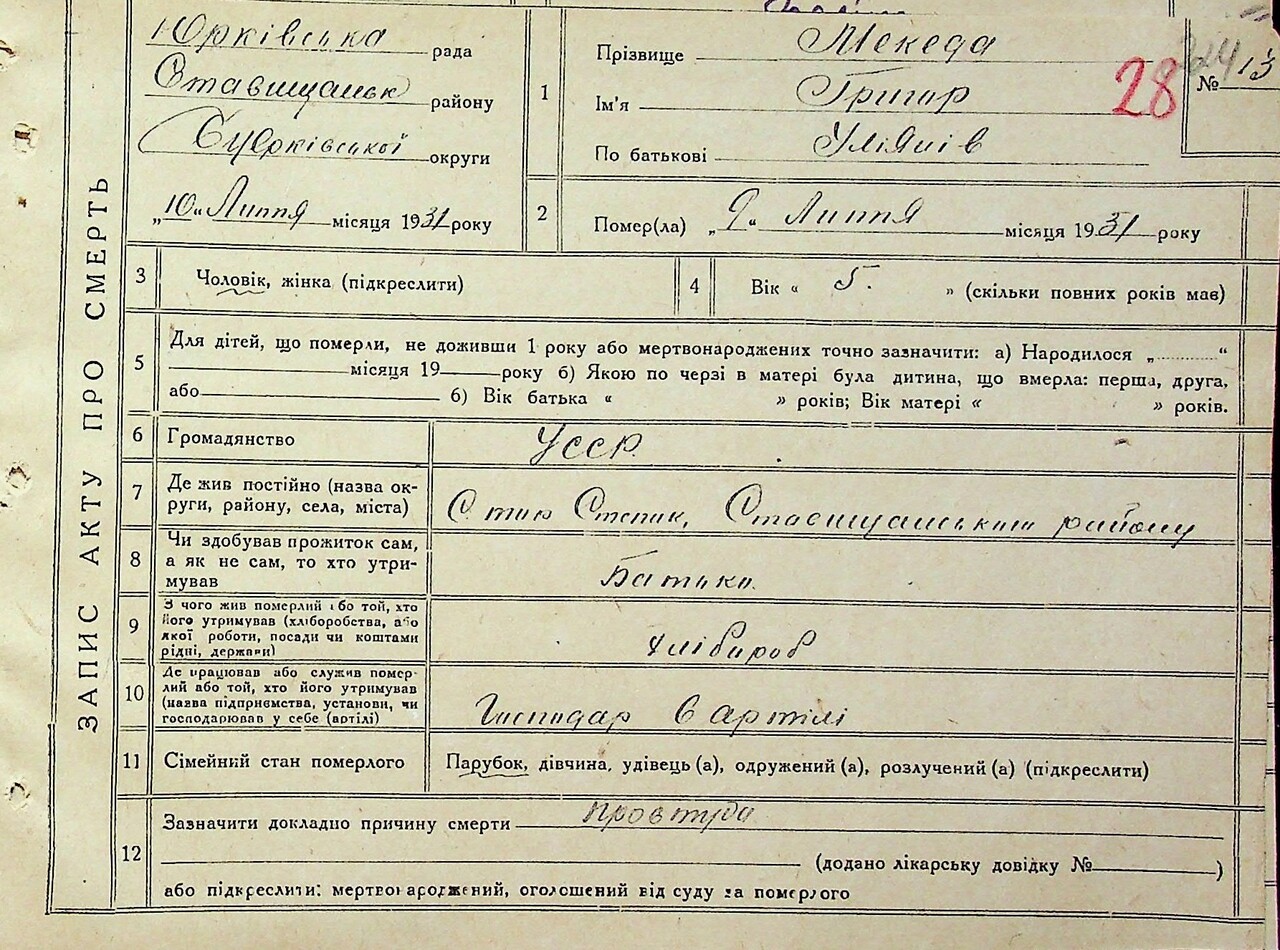 ЗАПИС АКТУ ПРО СМЕРТЬ
Юрківська рада
Ставищанськ району
округи
„10“ Липня місяця 1931 року
1
Прізвище Мекеда
Ім'я Григор
По батькові Уліянів
28
№ 13
2
Помер(ла) „9“ Липня місяця 1931 року
3
Чоловік, жінка (підкреслити)
4
Вік « 5. » (скільки повних років мав)
5
Для дітей, що померли, не доживши 1 року або мертвонароджених точно зазначити: а) Народилося „ “
місяця 19 року б) Якою по черзі в матері була дитина, що вмерла: перша, друга,
або б) Вік батька « » років; Вік матері « » років.
6
Громадянство УССР.
7
Де жив постійно (назва ок-
руги, району, села, міста)
Степик, Ставищанський району
8
Чи здобував прожиток сам,
а як не сам, то хто утри-
мував
Батько.
9
З чого жив померлий або той, хто
його утримував (хліборобства, або
якої роботи, посади чи коштами
рідні, держави)
хлібороб
10
Де працював або служив помер-
лий або той, хто його утримував
(назва підприємства, установи, чи
господарював у себе (артілі)
Господар в артілі
11
Сімейний стан померлого
Парубок, дівчина, удівець (а), одружений (а), розлучений (а) (підкреслити)
12
Зазначити докладно причину смерти простуда
(додано лікарську довідку № )
або підкреслити: мертвонароджений, оголошений від суду за померлого